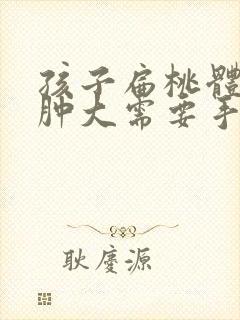 孩子扁桃體
肿大需要手
耿廈源